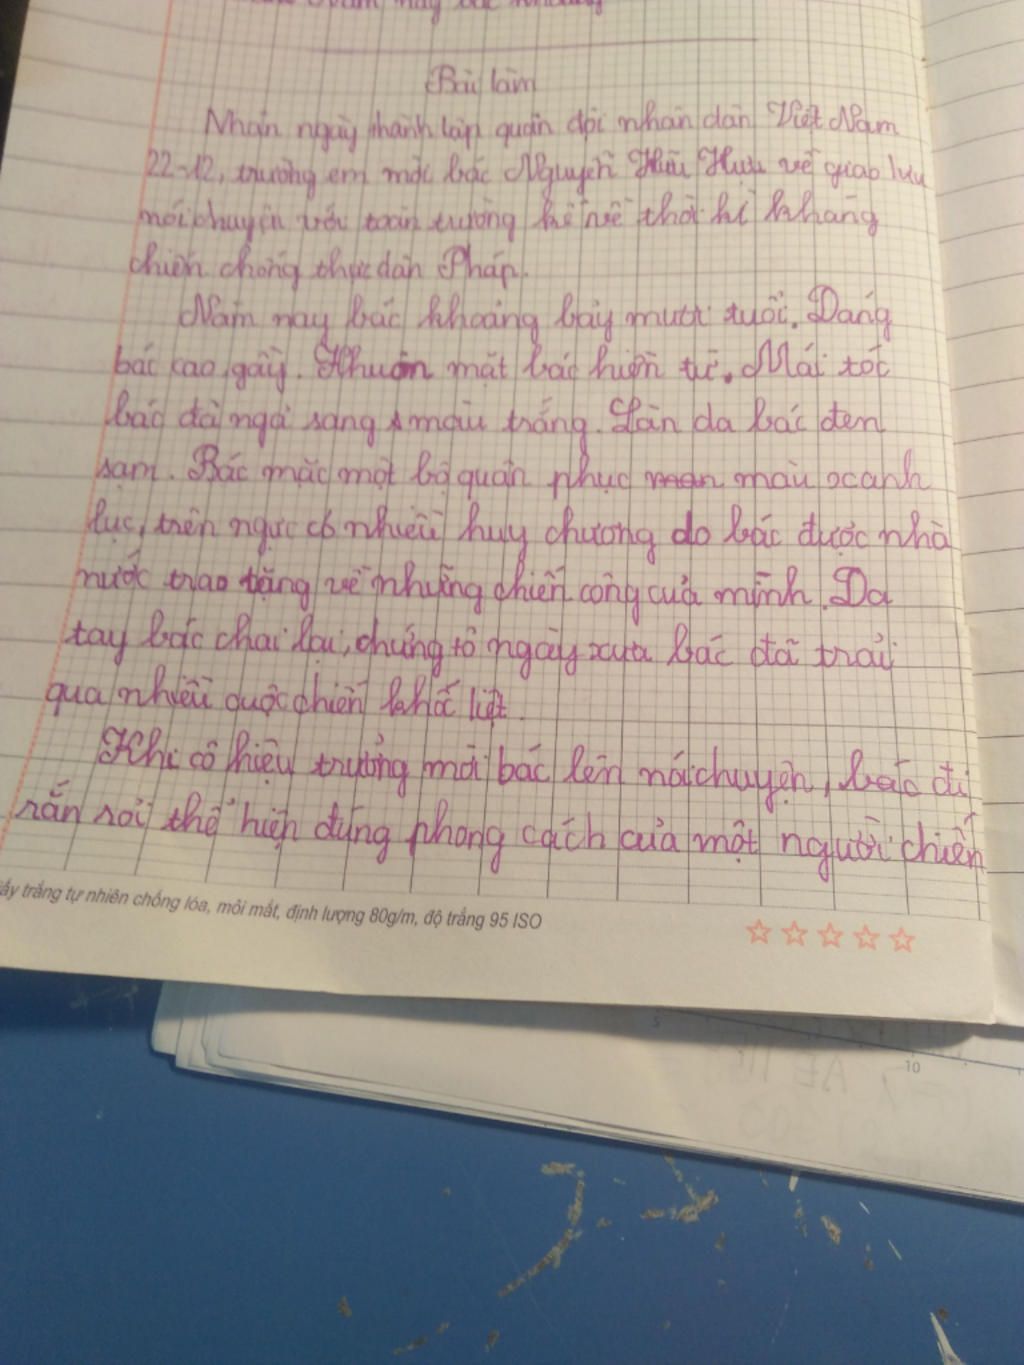 Bài làm
Nhân ngày thành lập quân đội nhân dân Việt Nam
22-12, trường em mời bác Nguyễn Hữu Hưu về giao lưu
nói chuyện với toàn trường kể về thời kì kháng
chiến chống thực dân Pháp.
Năm nay bác khoảng bảy mươi tuổi. Dáng
bác cao, gầy. Khuôn mặt bác hiền từ. Mái tóc
bác đã ngả sang màu trắng. Làn da bác đen
sạm. Bác mặc một bộ quân phục màu xanh
lục, trên ngực có nhiều huy chương do bác được nhà
nước trao tặng về những chiến công của mình. Da
tay bác chai lại, chứng tỏ ngày xưa bác đã trải
qua nhiều cuộc chiến khốc liệt.
Khi cô hiệu trưởng mời bác lên nói chuyện, bác đi
rắn rỏi thể hiện đúng phong cách của một người chiến
ấy trắng tự nhiên chống lóa, mỏi mắt, định lượng 80g/m, độ trắng 95 ISO
5
10